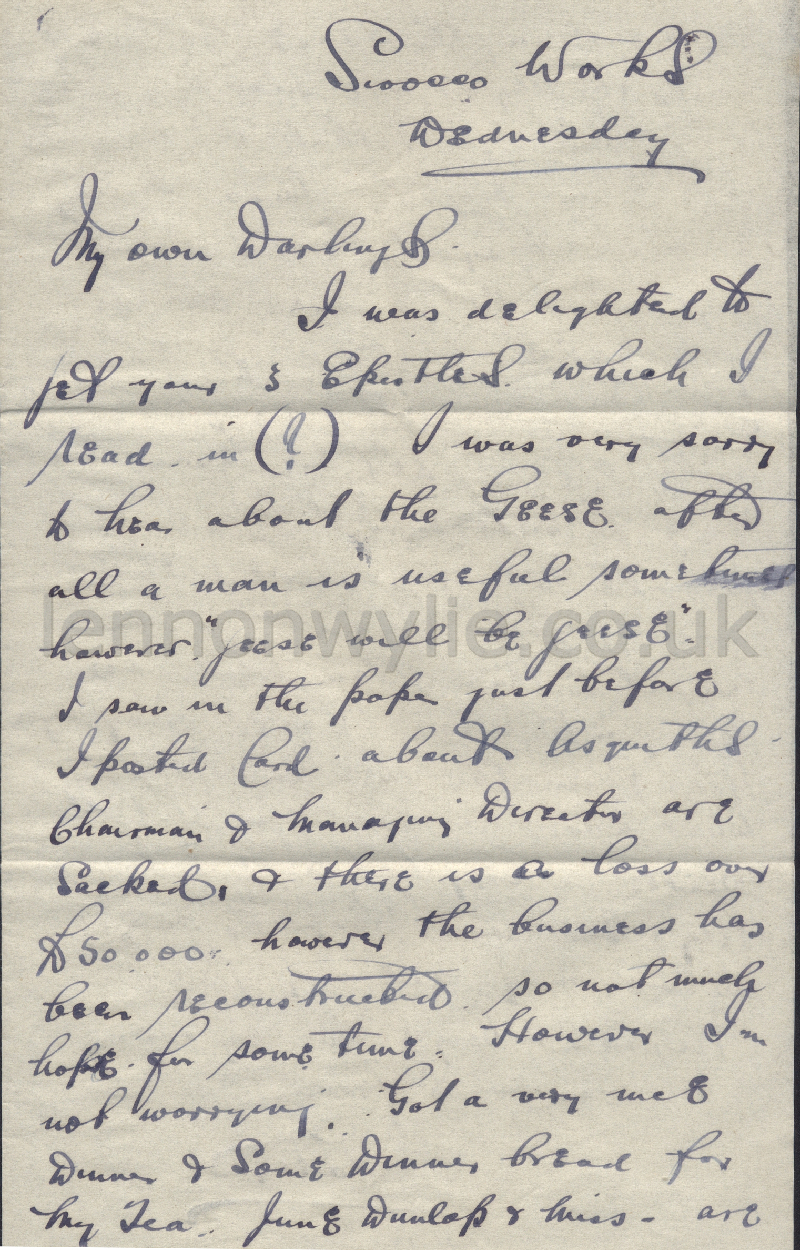 Sirocco Works
Wednesday
My own Darlings.
I was delighted to
get your 3 Epistles. which I
read. in (?) I was very sorry
to hear about the GEESE. after
all a man is useful sometimes
however. "geese will be geese".
I saw in the paper just before
I posted Card. about Asquiths.
Chairman & Managing Director are
Sacked, & there is a loss over
£50 000. however the business has
been reconstructed. so not much
hope. for some time. However I'm
not worrying. Got a very nice
Dinner & Some Dinner bread for
My Tea. June Dunlop & Miss - are
lennonwylie.co.uk